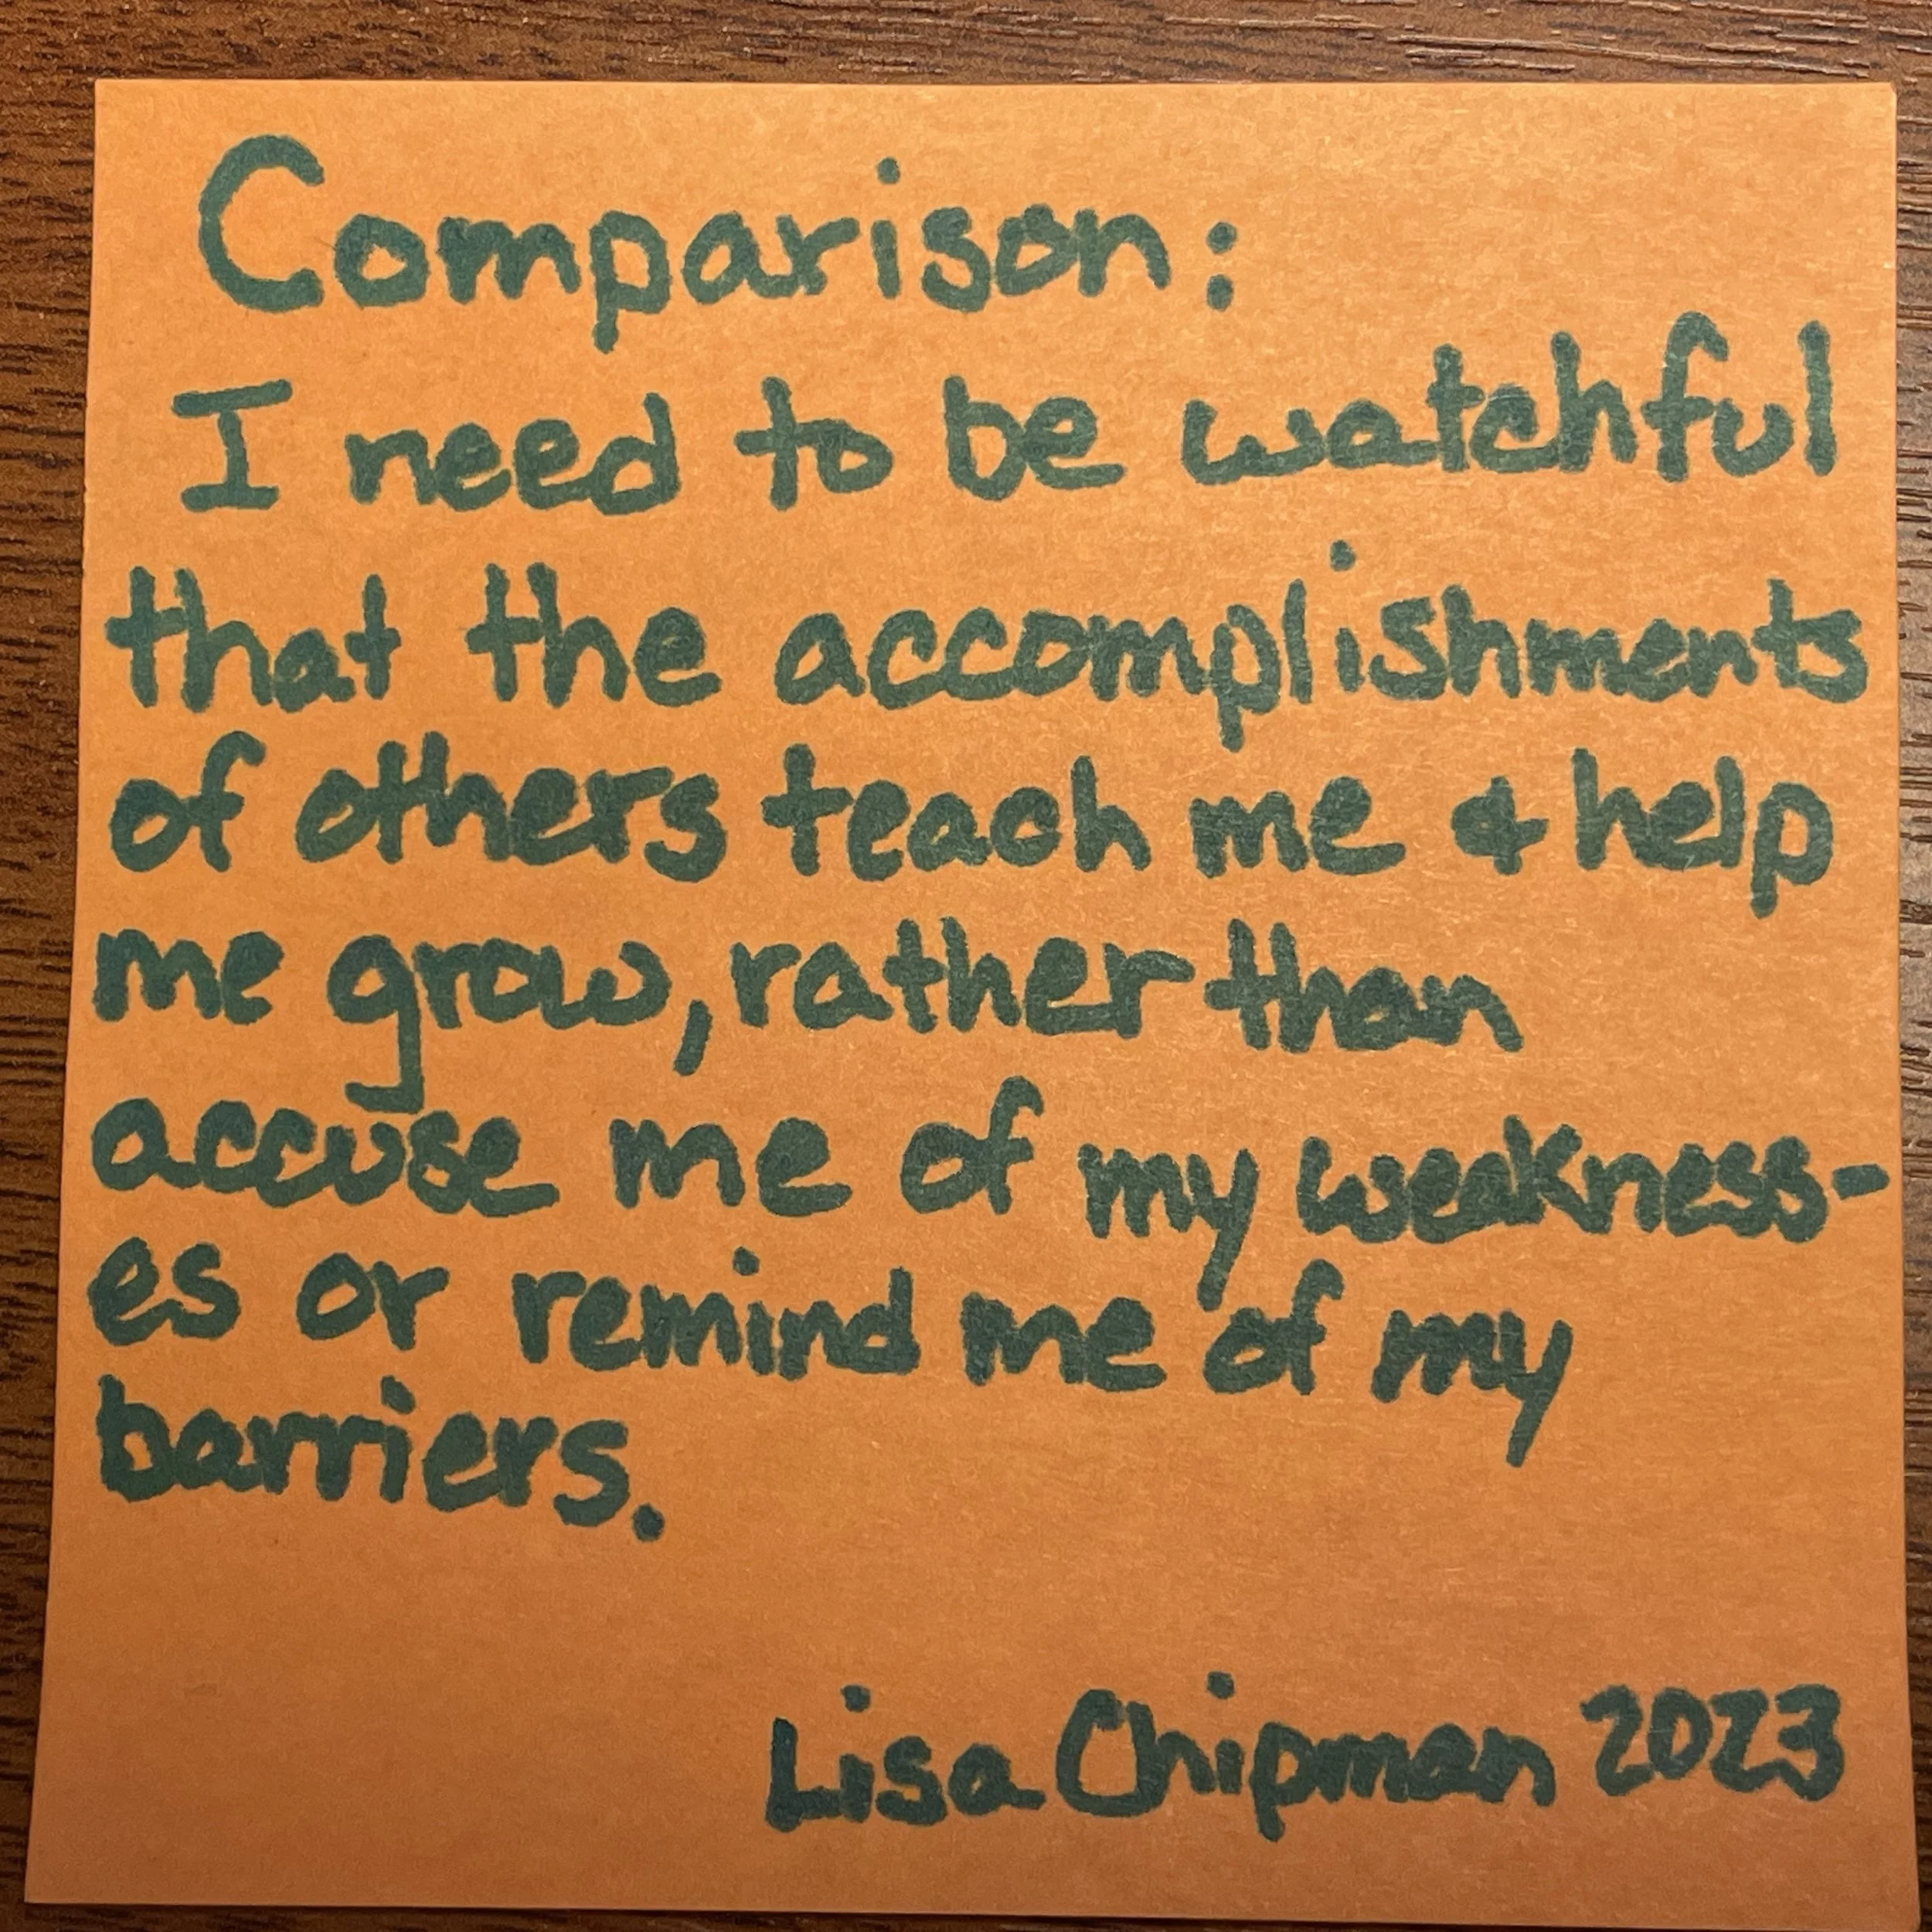 Comparison:
I need to be watchful
that the accomplishments
of others teach me & help
me grow, rather than
accuse me of my weakness-
es or remind me of my
barriers.
Lisa Chipman 2023